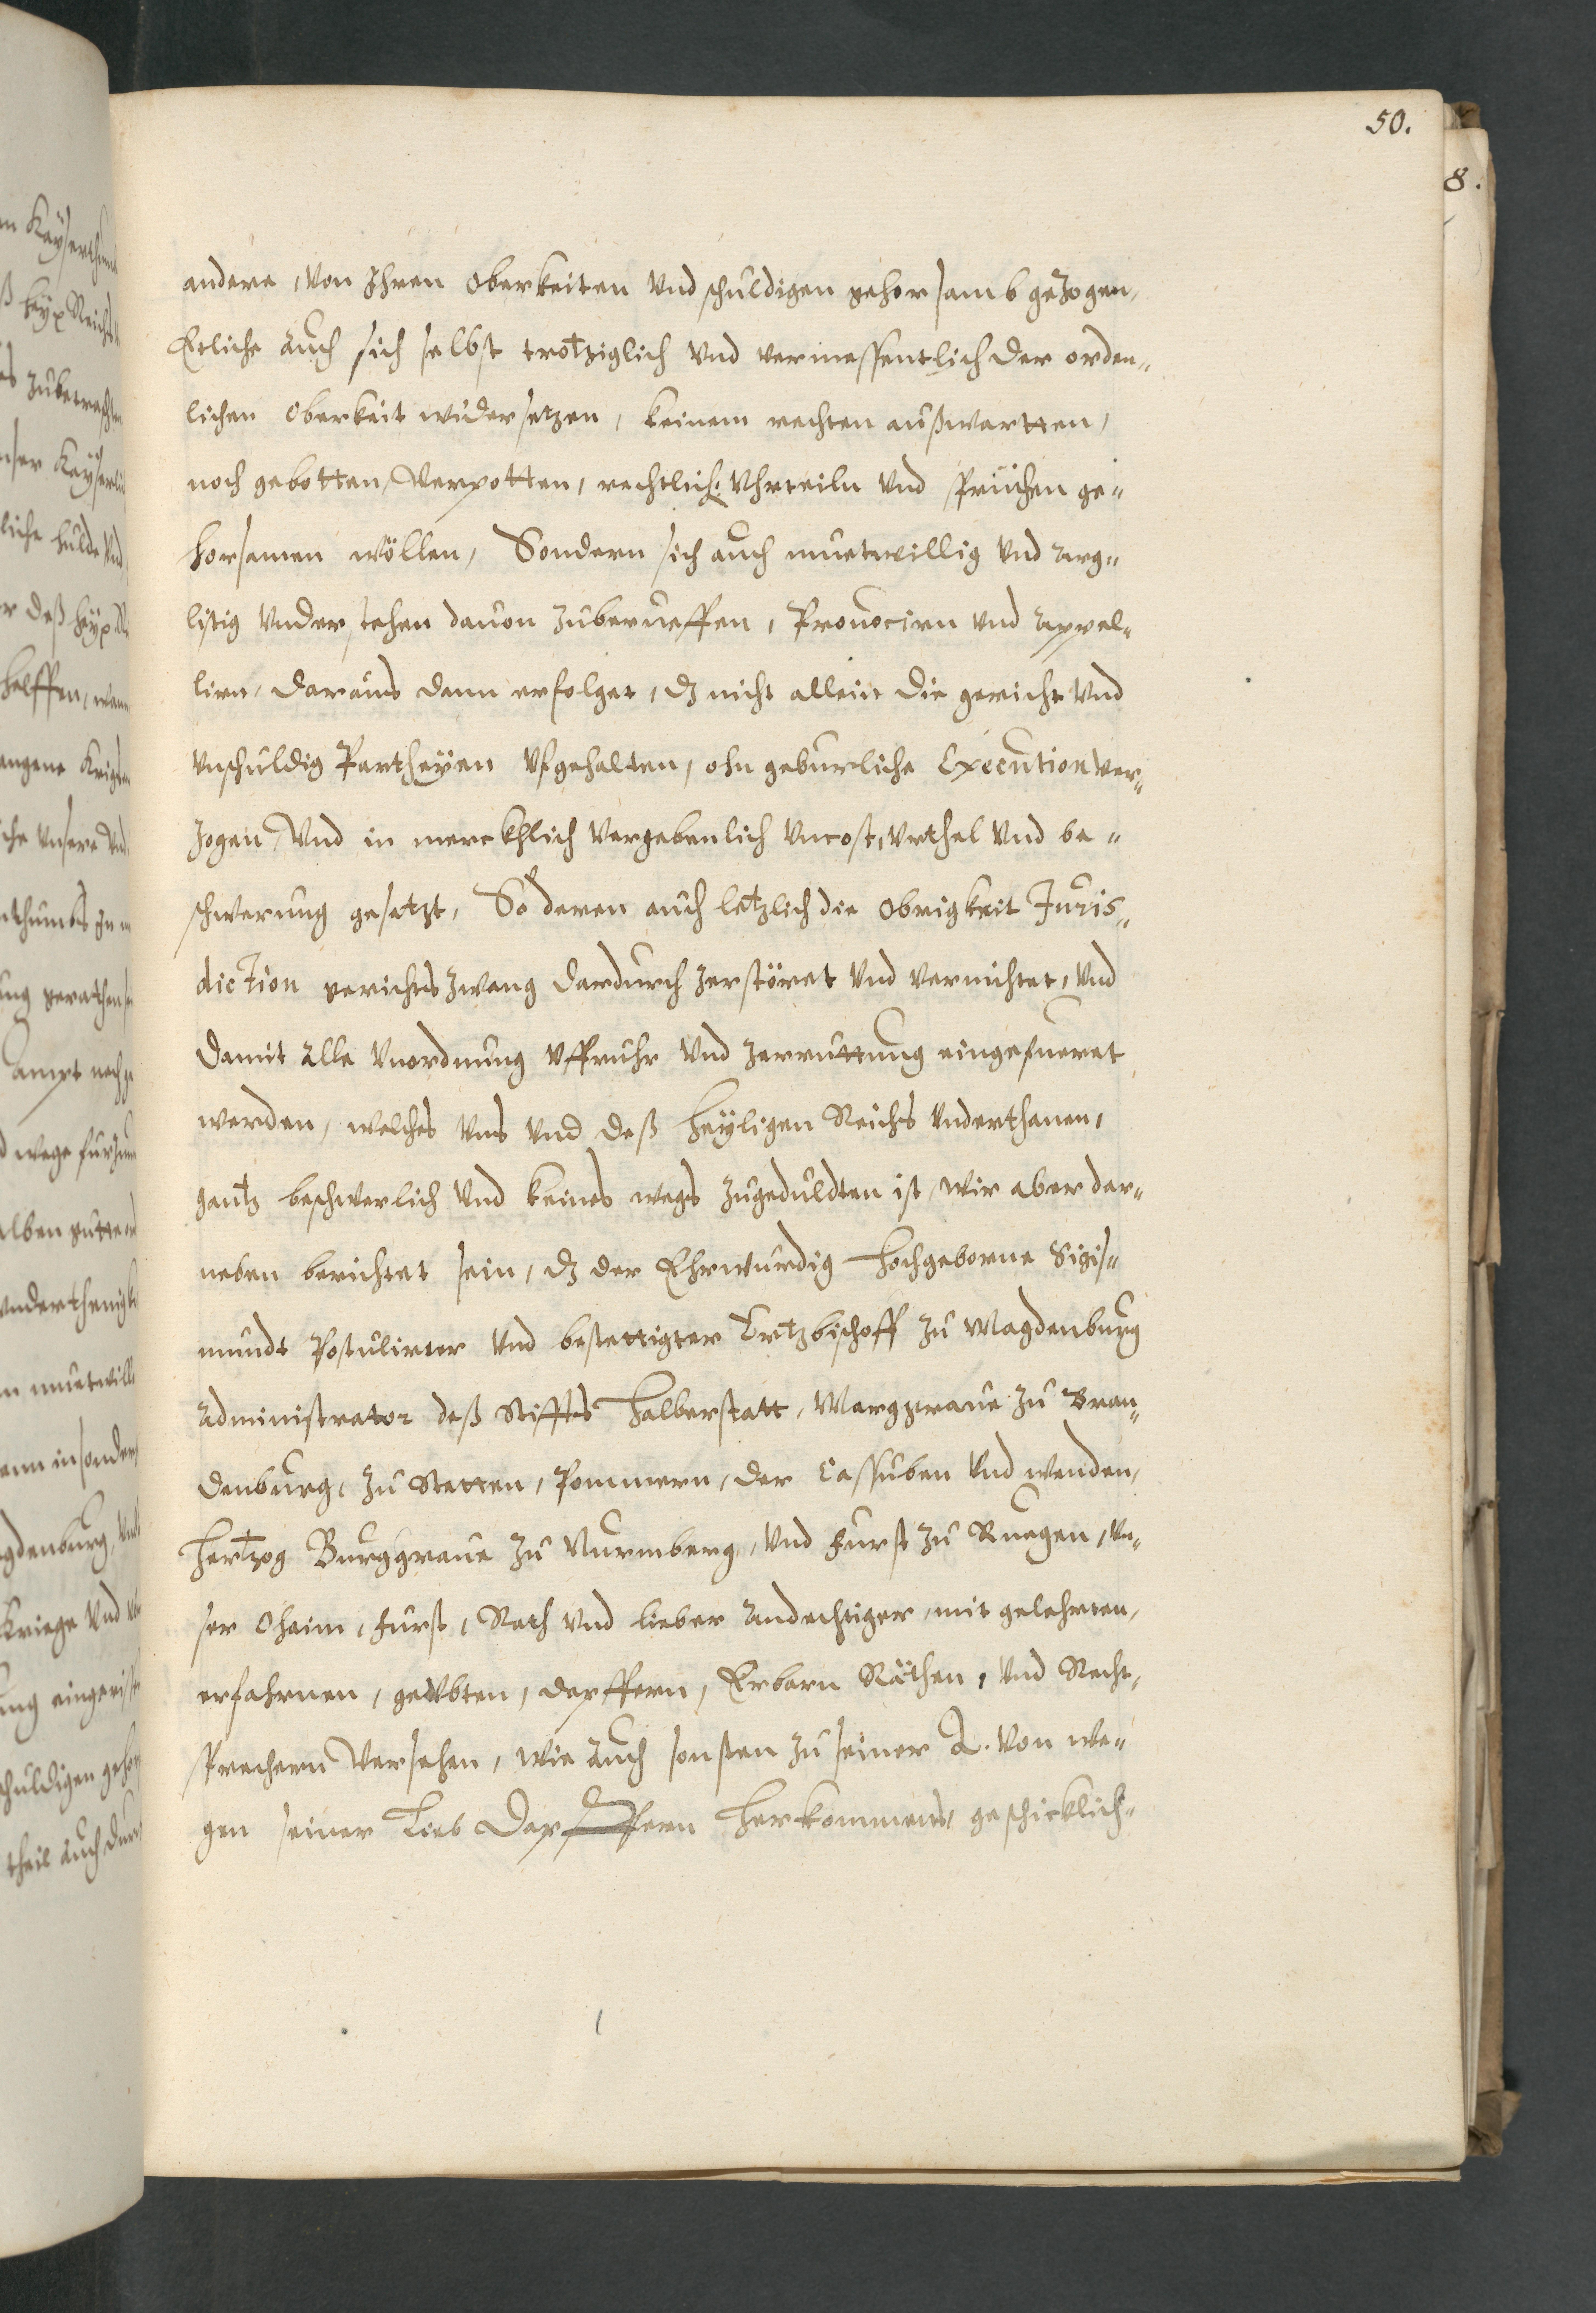 50.
8.
andere, von Ihren Oberkeiten vnd schuldigen gehorsamb gezogen,
Etliche auch sich selbst trotziglich vnd vermessentlich der orden„
lichen Oberkeit widersetzen, keinem rechten außwartten,
noch gebotten, Verpotten, rechtlich: Vhrteiln vnd sprüchen ge„
horsamen wöllen, Sondern sich auch muetwillig vnd arg„
listig vnderstehen dauon zuberueffen, Prouociren vnd appel„
lirn, daraus dann erfolget, dz nicht allein die gericht vnd
vnschuldig Partheyen vfgehalten, ohn geburliche Execution ver„
zogen, Vnd in merckhlich vergebenlich vncost, vrthel vnd be„
schwerung gesetzt, So deren auch letzlich die Obrigkeit Juris„
diction gerichts zwang dardurch zerstöret vnd vernichtet, vnd
damit alle vnordnung vffruhr vnd zerruttung eingefueret
werden, welches vns vnd deß heyligen Reichs vnderthanen,
gantz beschwerlich vnd keines wegs zugeduldten ist, wir aber dar„
neben berichtet sein, dz der Ehrwurdig Hochgeborne Sigis„
mundt Postulirter vnd bestettigter Ertzbischoff zu Magdenburg
Administrator deß Stiffts Halberstatt, Marggraue zu Bran„
denburg, zu Stetten, Pommern, der Cassuben vnd wenden,
Hertzog Burggraue zu Nurmberg, vnd Furst zu Ruegen, vn„
ser Ohaim, Furst, Rath vnd lieber Andechtiger, mit gelehrten,
erfahrnen, geübten, dapffern, Erbarn Räthen, vnd Recht„
sprechern versehen, wie auch sonsten zu seiner L. von we„
gen seiner Lieb Dapffern Herkommens, geschicklich„